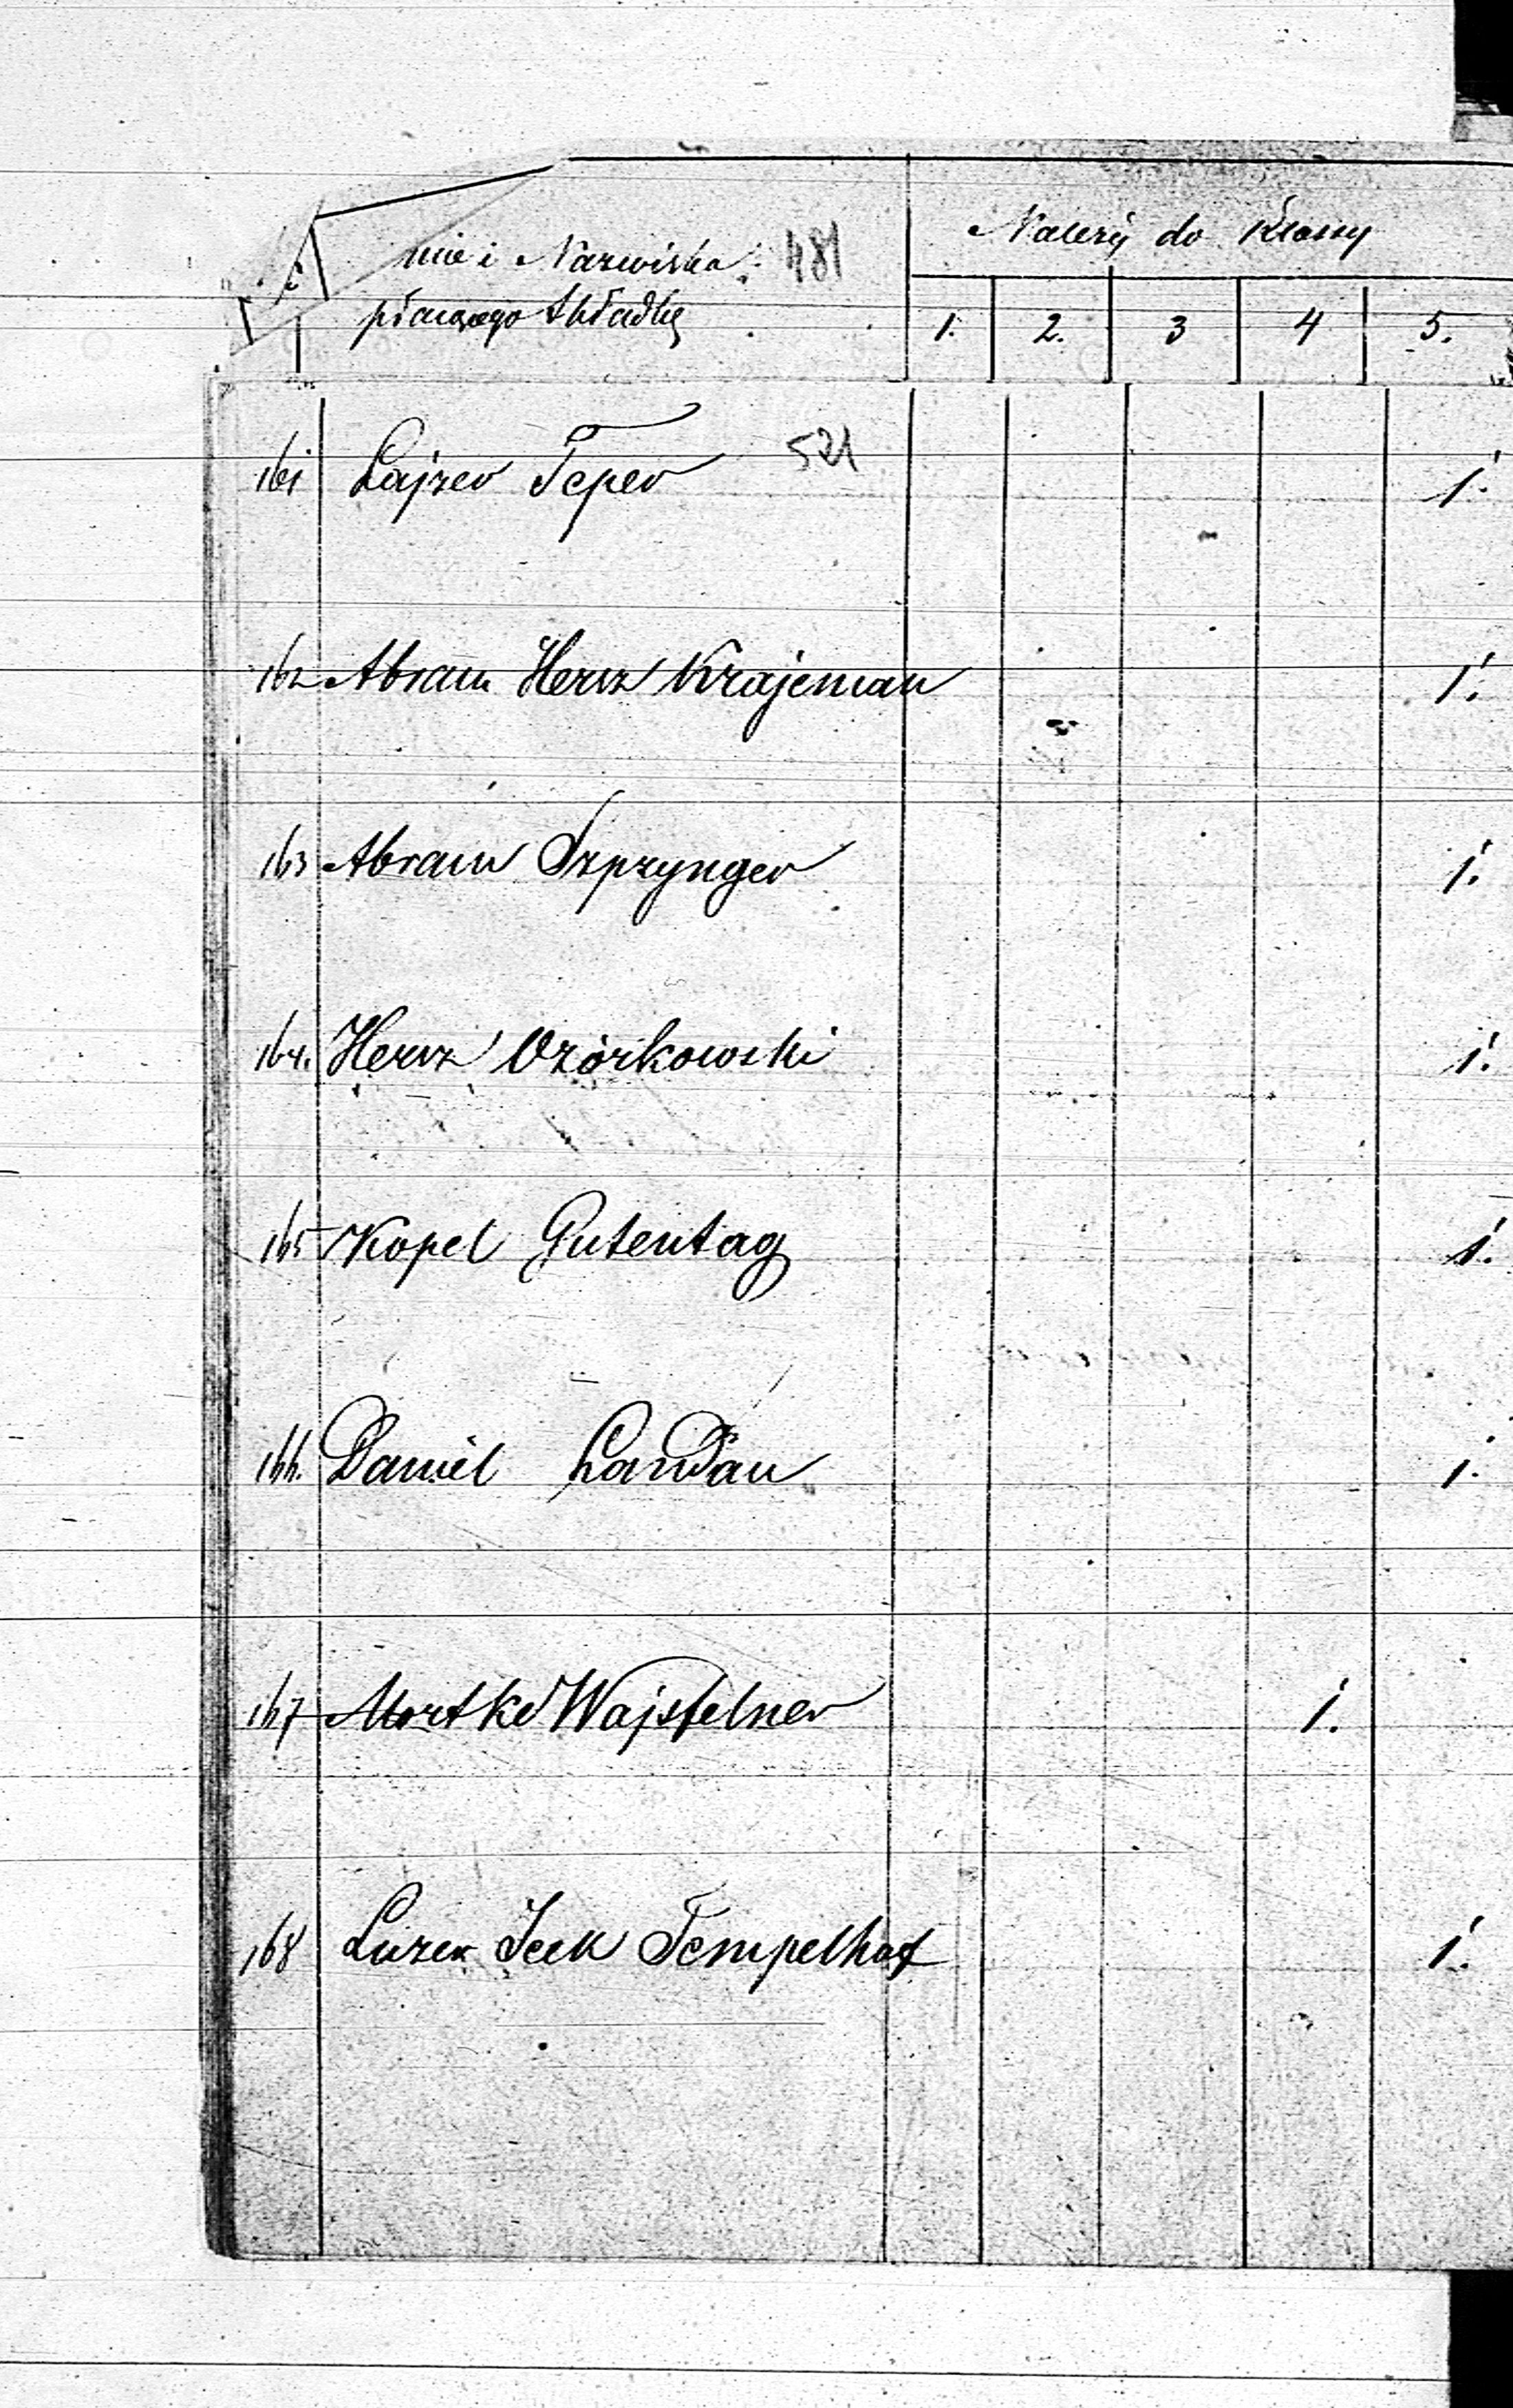 mie i Nazwiska 481
płacącego Składkę
Należy do Klassy
1. 2. 3 4 5.
161 Lajzer Teper 521 1.
162 Abram Hersz Krajeman 1.
163 Abram Szprynger 1.
164. Hersz Ozórkowski 1.
165 Kopel Gutentag 1.
166. Daniel Landau 1.
167 Mortke Wajsfelner 1.
168 Luzer Icek Tempelhof 1.